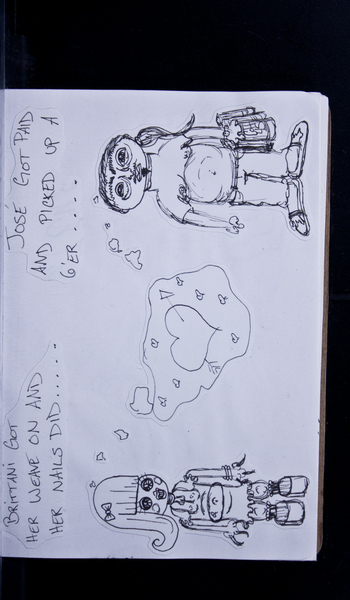 BRITTANI GOT
HER WEAVE ON AND
HER NAILS DID......
JOSÉ GOT PAID
AND PICKED UP A
6'ER .....